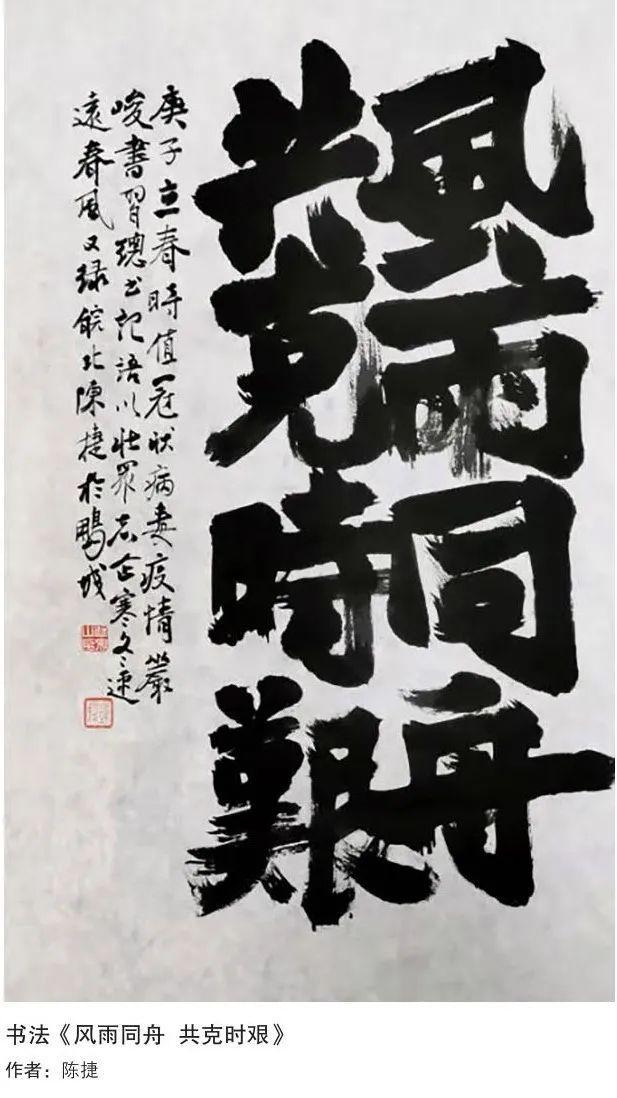 風雨同舟
共克時艱
庚子立春時值冠狀病毒疫情嚴
峻書習總书記語以壯眾志企寒冬速
遠春風又緑皖北陳捷於鵬城
书法《风雨同舟 共克时艰》
作者：陈捷